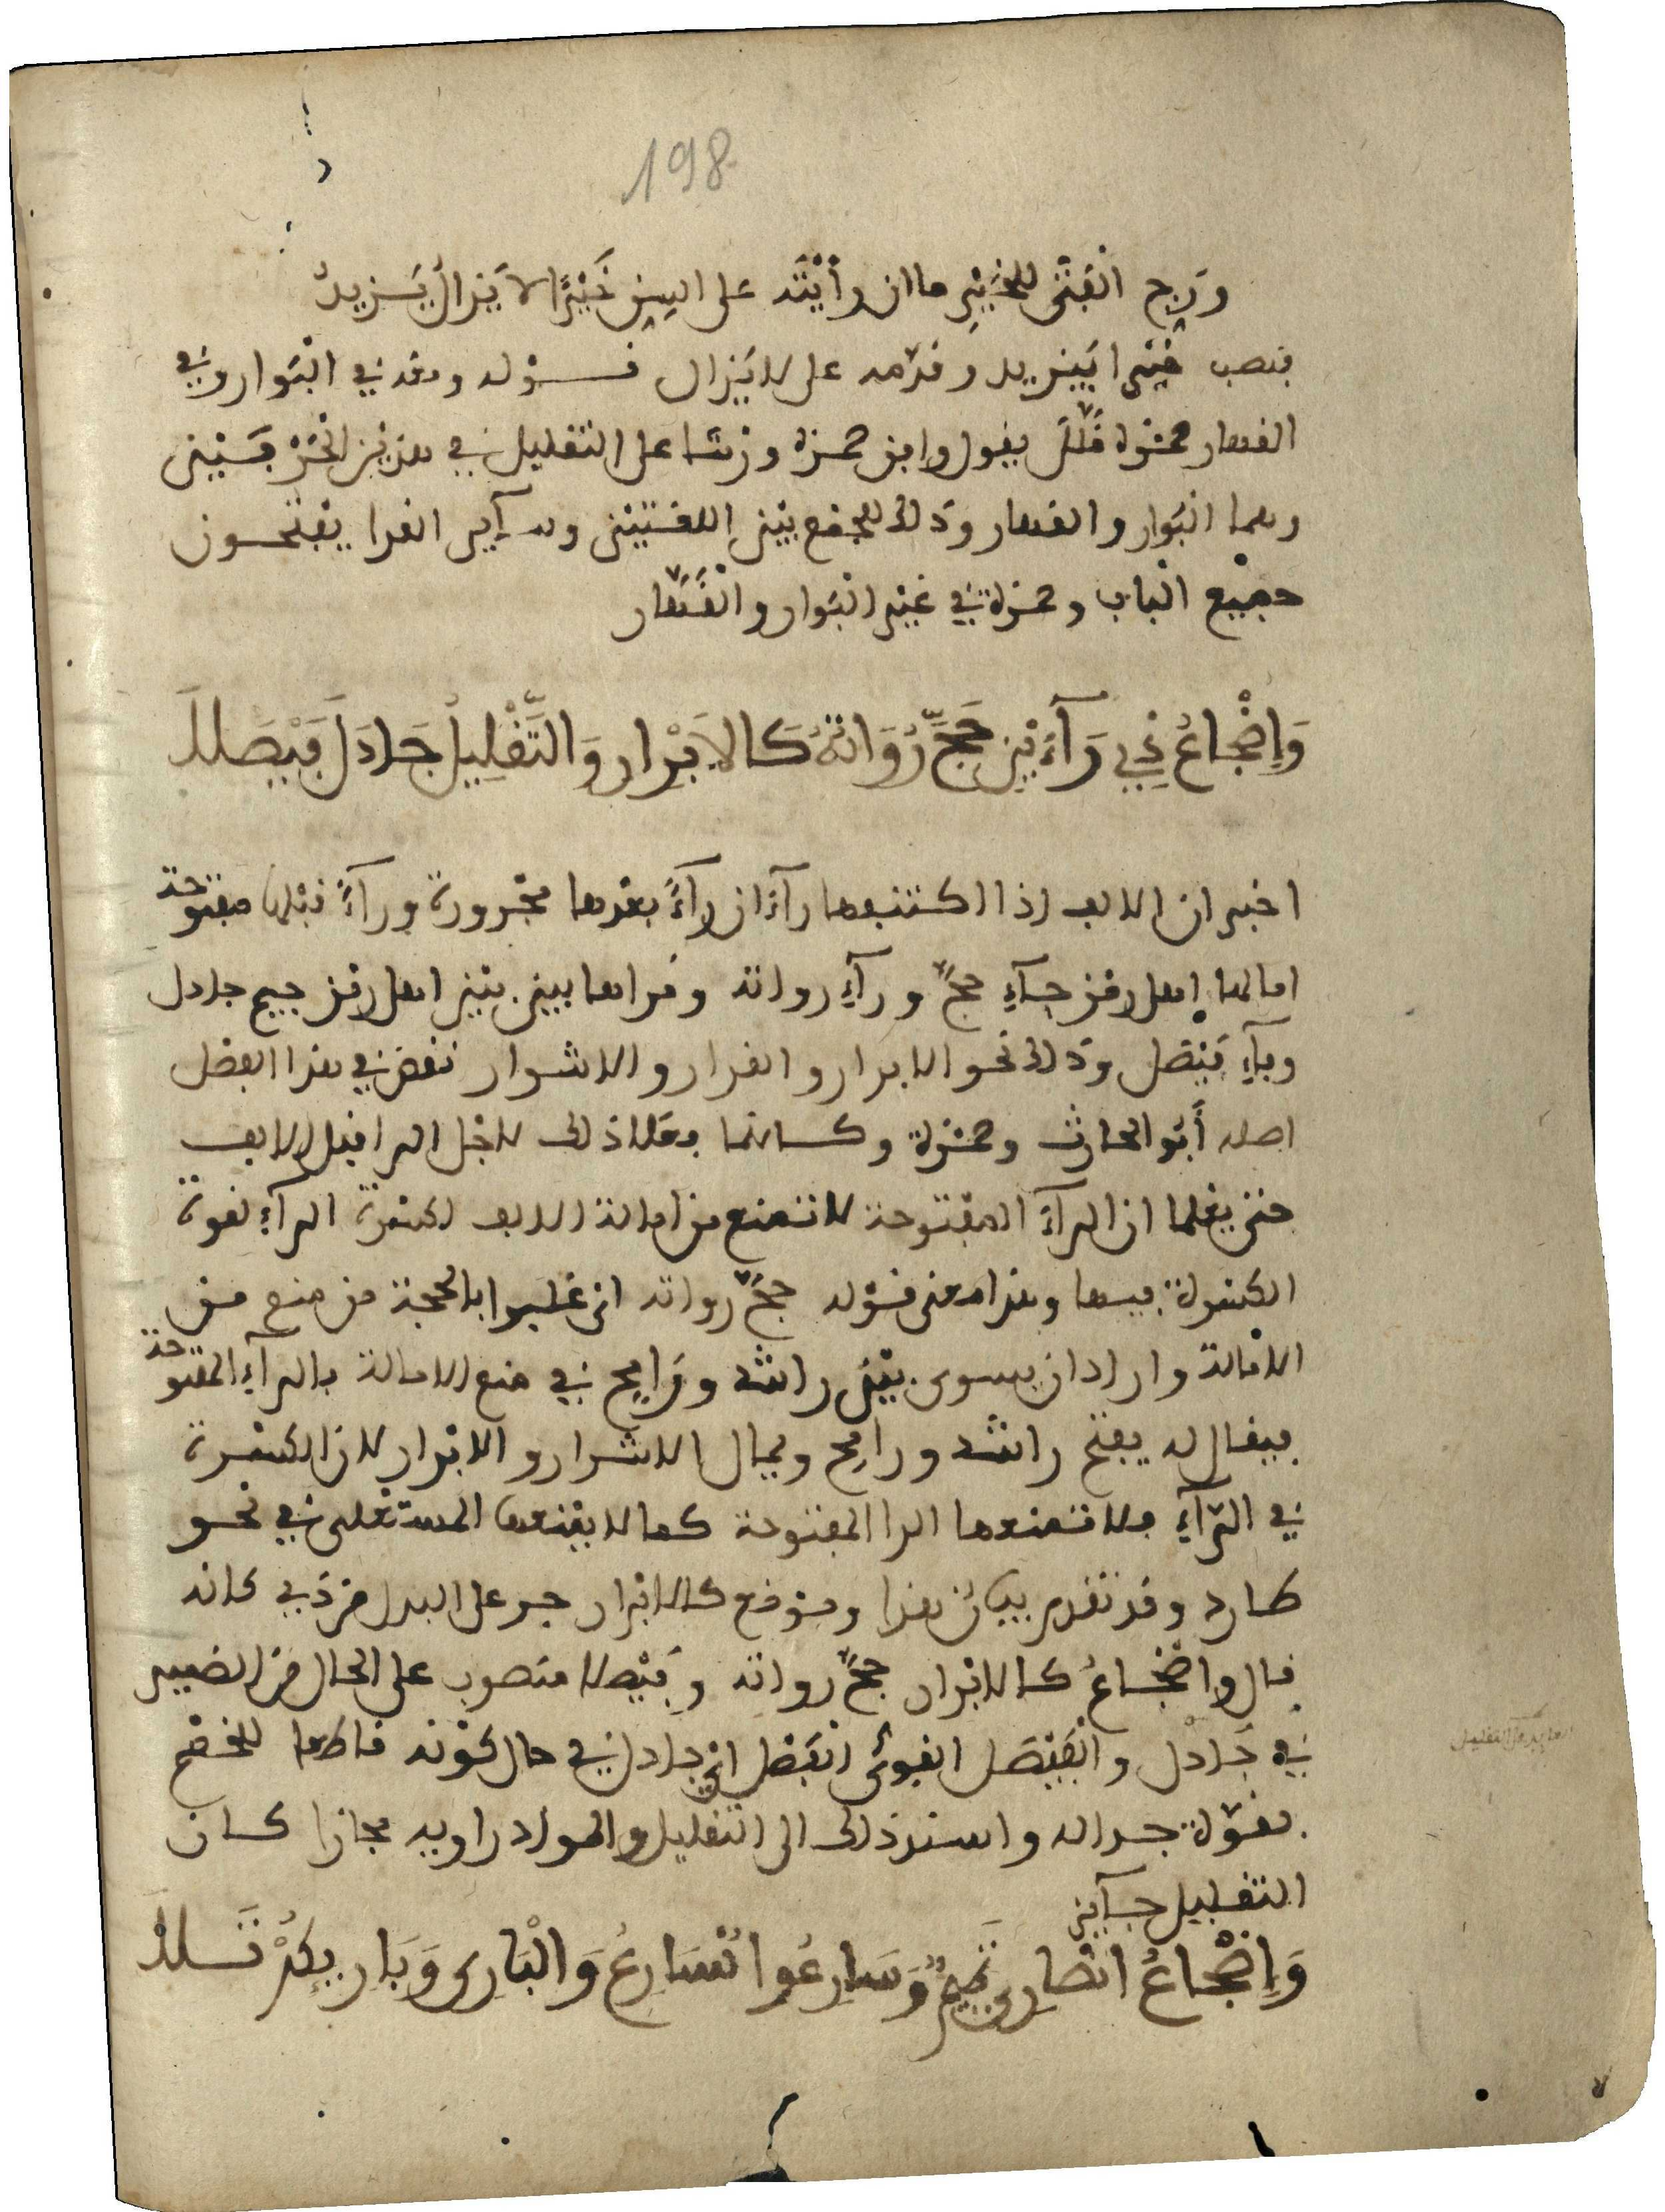 198
ورج الفتى للخير ما ان رأيته على السن خيرا لا يزال يزيد
فنصب خيرا بيزيد وقدمه على لا يزال قوله ومعه في البوار وفي
القهار حمزة قلل يقول وافق حمزة ورشا على التقليل في هذين الحرفين
وهما البوار والقهار وذلك للجمع بين اللغتين وسآير القرا يفتحون
جميع الباب وحمزة في غير البوار والقهار
وَإِضْجَاعُ ذِي رَآءَيْنِ حَجَّ رُوَاتُهُ كَالاَبْرِارِ وَالتَّقْلِيلُ جَادَلَ فَيْصَلَا
اخبر ان الالف اذا اكتنفها رآءان رآءٌ بعدها مجرورة ورآءٌ قبلها مفتوحة
امالها اهل رمز حآءِ حجّ ورآءِ رواته وقراها بين بين اهل رمز جيم جادل
وفآءِ فيصل وذلك نحو الابرار والقرار والاشرار نقض في هذا الفصل
اصله أبو الحارث وحمزة وكانما فعلا ذلك لاجل الرا قبل الالف
حتى يعلما ان الرآءَ المفتوحة لا تمنع من امالة الالف لكسرة الرآءِ لقوة
الكسرة فيها وهذا معنى قوله حجّ رواته اي غلبوا بالحجة من منع من
الامالة واراد ان يسوى بين راشد ورامح في منع الامالة بالرآءِ المفتوحة
فيقال له يفتح راشد ورامح ويمال الاشرار والابرار لان الكسرة
في الرآءِ فلا تمنعها الرا المفتوحة كما لا يمنعها المستعلى في نحو
طارد وقد تقدم بيان هذا وموضع كالابرار جر على البدل من ذي كانه
قال واضجاعُ كالابرار حجّ رواته وفيصلا منصوب على الحال من الضمير
في جادل والفيصل القوىُّ الفصل اي جادل في حال كونه قاطعا للخصم
بقوة جداله واسند ذلك الى التقليل والمراد راويه مجازا كان
التقليل جآيز
وَإِضْجَاعُ انْصَارِى تَمِيمٌ وَسَارِعُوا نُسَارِعُ وَالْبَارِى وَبَارِيِكُمْ تَلَا